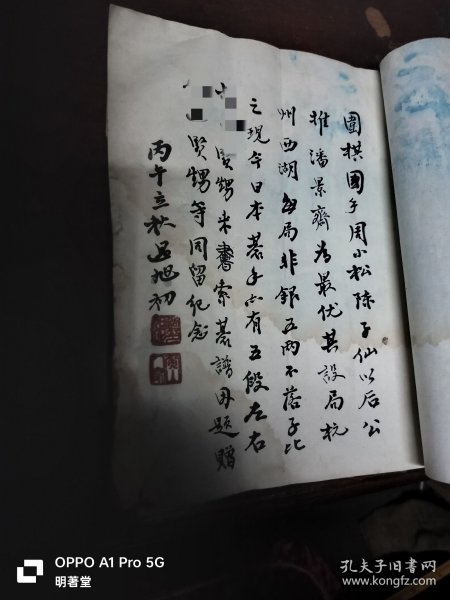 圍棋國手周小松陳子仙以后公
推潘景齋為最优其設局杭
州西湖每局非銀五两不落子比
之現今日本棊手亦有五段左右
賢甥来書索棊譜因题贈
賢甥等同留纪念
丙午立秋吕旭初
OPPO A1 Pro 5G
明著堂
孔夫子旧书网
www.kongfz.com